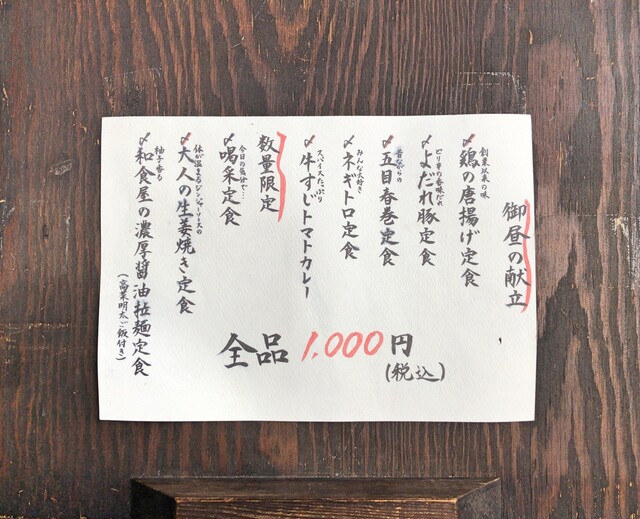 御昼の献立
創業以来の味
〆鶏の唐揚げ定食
ピリ辛の香味だれ
〆よだれ豚定食
昔ながらの
〆五目春巻定食
みんな大好き
〆ネギトロ定食
スパイスたっぷり
〆牛すじトマトカレー
数量限定
今日の気分で…
〆喝采定食
体が温まるジンジャーソースの
〆大人の生姜焼き定食
柚子香る
〆和食屋の濃厚醤油拉麺定食
(高菜明太ご飯付き)
全品1,000円
(税込)